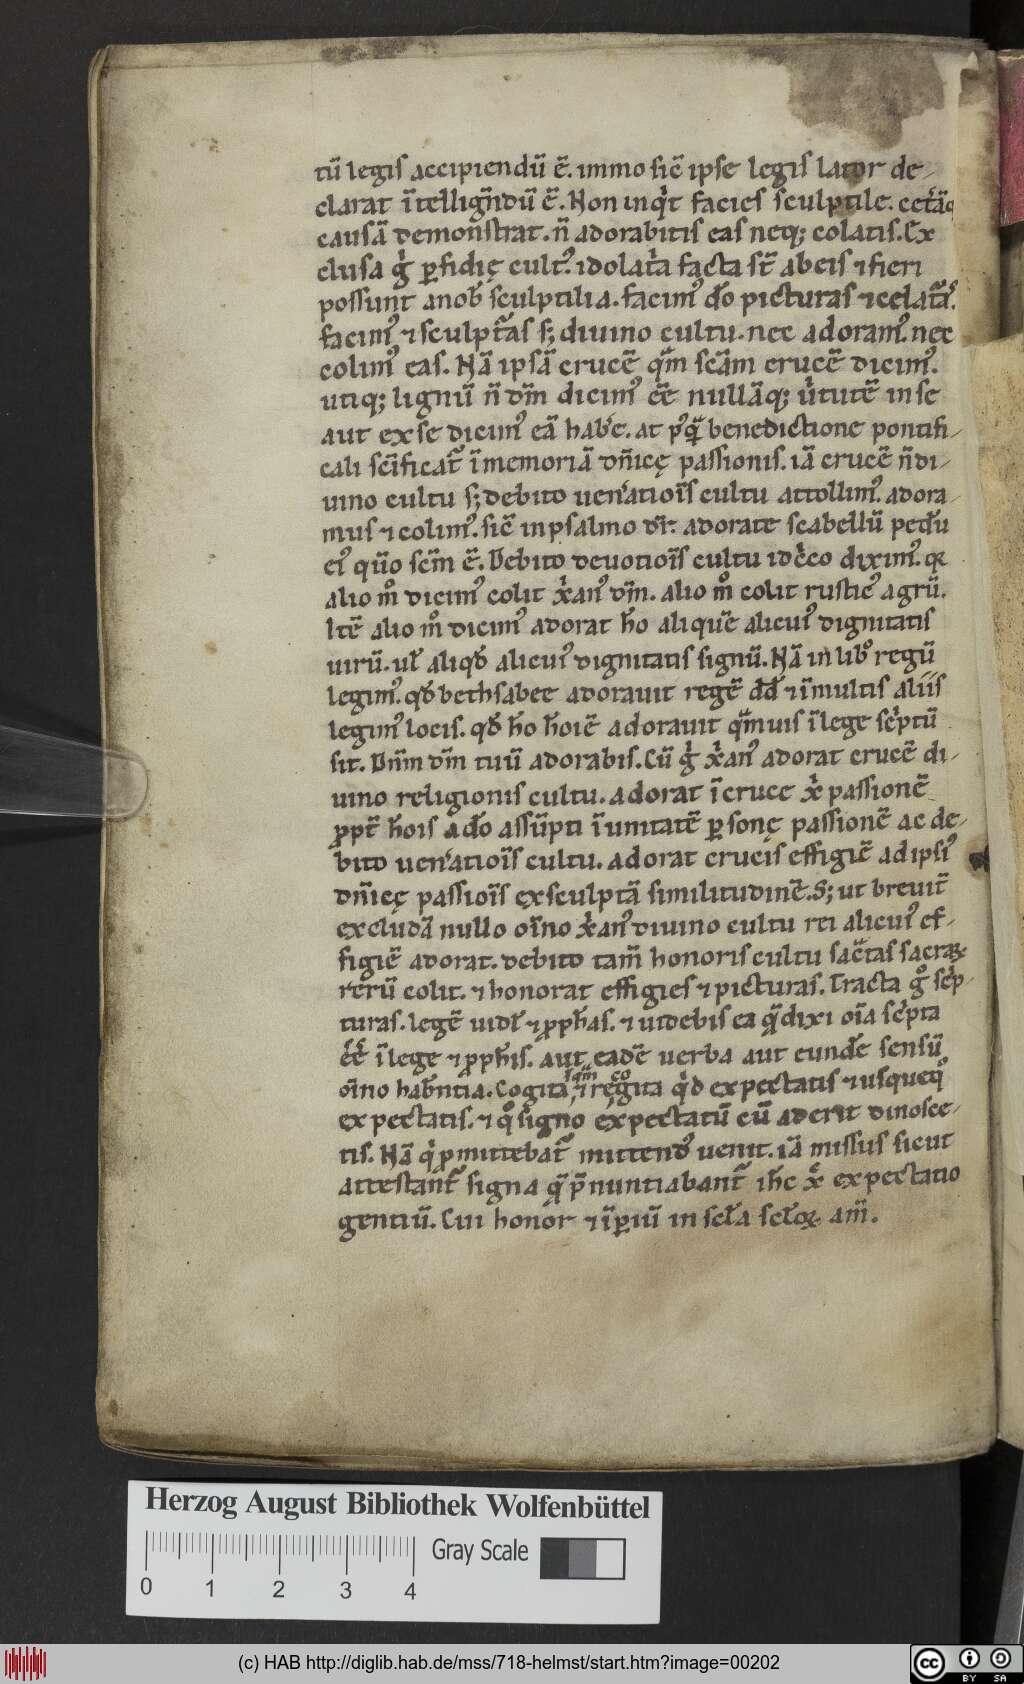 tū legis accipiendū ē. immo sic̄ ipse legis lator de-
clarat ītellign̄dū ē. Non inqͥt facies sculptile. et cā̄q
causā demonstrat. n̄ adorabitis eas neq; colatis. Ex
clusa gͥ ꝑfidię cultꝰ. idolatͥa facta st̄ ab eis ⁊ fieri
possunt a nob̄ sculptilia. facimꝰ do̅ picturas ⁊ celatᷓas.
facimꝰ ⁊ sculptᷓas s; diuino cultu. nec adoramꝰ. nec
colimꝰ eas. Nā ipsā crucē qᷓm scām crucē dicimꝰ.
utiq; lignū n̄ dm̄ dicimꝰ. ēē nullāq; uͥtutē in se
aut ex se dicimꝰ eā habe̅. at pꝰqᷓ benedictione pontifi-
cali sc̄ificat᷑ ī memoriā dn̄icę passionis. iā crucē n̄ di-
uino cultu s; debito uen̄atiois̄ cultu attollimꝰ. adora-
mus ⁊ colimꝰ. sic̄ in psalmo dr̄. adorate scabellū pedū
eiꝰ qūo scm̄ ē. Debito deuotiois̄ cultu idc̄co diximꝰ. qꝛ
alio mͦ dicimꝰ colit xͥanꝰ dm̄. alio mͦ colit rusticꝰ agrū.
Itē alio mͦ dicimꝰ adorat ho̅ aliquē alicuiꝰ dignitatis
uirū. ul̄ aliqd̄ alicuiꝰ dignitatis signū. Nā in libͦ regū
legimꝰ. qd̄ bethsabee adorauit regē dd̄ ⁊ ī multis aliis
legimꝰ locis. qd̄ ho̅ ho̅iē adorauit qᷓmuis ī lege scͥptū
sit. Dn̄m dm̄ tuū adorabis. Cū gͥ xͥanꝰ adorat crucē di-
uino religionis cultu. adorat ī cruce xͥ passionē
ꝓpt̄ ho̅is a do̅ assūpti ī unitatē ꝑsonę passionē ac de-
bito uen̄atiois̄ cultu. adorat crucis effigiē ad ipsiꝰ
dn̄icę passiois̄ exsculptā similitudinē. S; ut breuit̄
excludā nullo oīno xͥanꝰ diuino cultu rei alicuiꝰ ef-
figiē adorat. debito tam̄ honoris cultu sac̄tas sacraꝝ
rerū colit. ⁊ honorat effigies ⁊ picturas. Tracta gͦ scͥp-
turas. lege̅ uidr̄ ⁊ ꝓph̄as. ⁊ uidebis ea qᷓ dixi oīa scͥpta
ēē ī lege ⁊ ꝓph̄is. aut eadē uerba aut eundē sensū
oīno hab̄ntia. Cogita ⁊ regita qͥd expectatis ⁊ usquequͦ
expectatis. ⁊ qͦ signo expectatū cū aderit dinosce-
tis. Nā qͥ ꝓmittebat᷑ mittendꝰ uenit. iā missus sicut
attestant᷑ signa qᷓ p̄nuntiabant᷑ ih̄c xͥ expectatio
gentiū. Cui honor ⁊ īꝑiū in scl̄a scl̄oꝝ. am̄.
Herzog August Bibliothek Wolfenbüttel
Gray Scale
0 1 2 3 4
(c) HAB http://diglib.hab.de/mss/718-helmst/start.htm?image=00202
cc BY SA